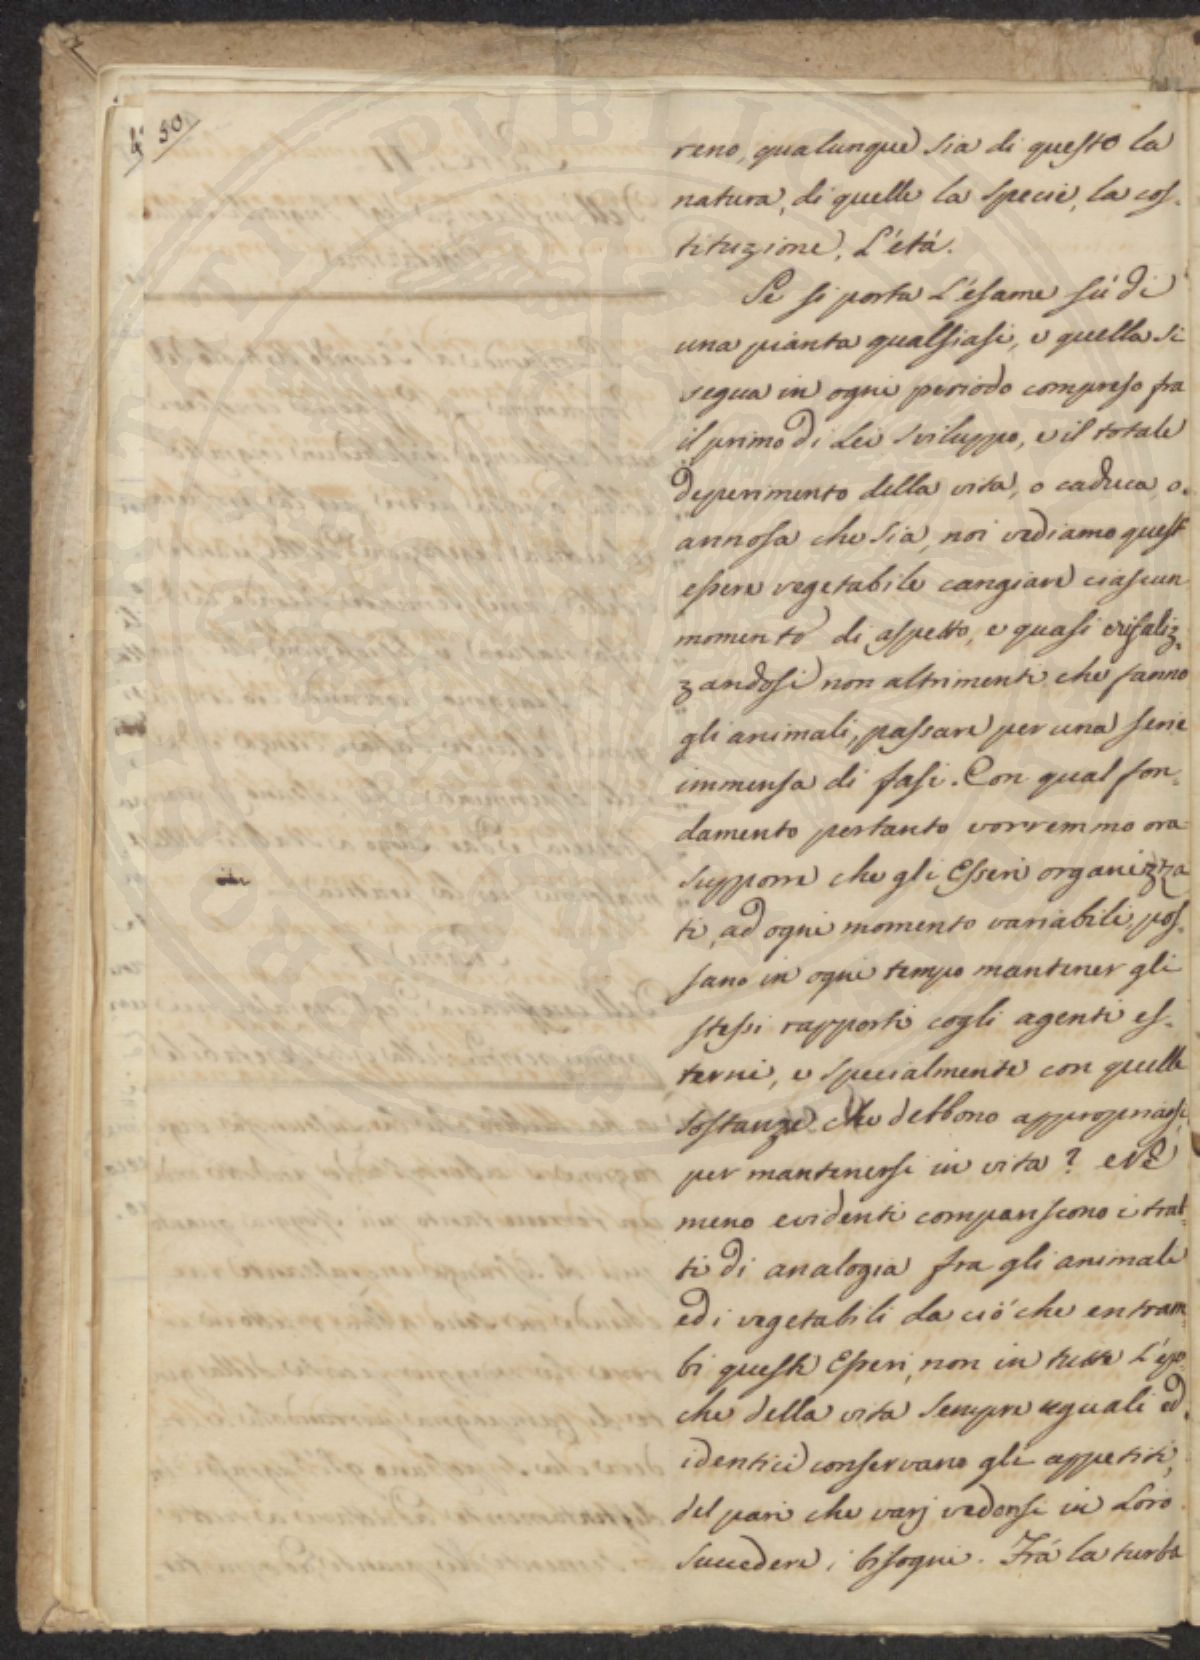 50
reno, qualunque sia di questo la
natura, di quelle la specie, la cos-
tituzione, L'etá.
Se si porta L'esame sú di
una pianta qualsiasi, e quella si
segua in ogni periodo compreso fra
il primo di Lei sviluppo, e il totale
deperimento della vita, o caduca, o
annosa che sia, noi vediamo quest'
essere vegetabile cangiare ciascun
momento di aspetto, e quasi crisaliz-
zandosi non altrimenti che fanno
gli animali, passare per una serie
immensa di fasi. Con qual fon-
damento pertanto vorremmo ora
supporre che gli Esseri organizza
ti, ad ogni momento variabili, pos-
sano in ogni tempo mantener gli
stessi rapporti cogli agenti es-
terni, e specialmente con quelle
sostanze che debbono appropriarsi
per mantenersi in vita? e Né
meno evidenti compariscono i trat-
ti di analogia fra gli animali
ed i vegetabili da ció che entram-
bi questi Esseri, non in tutte L'epo-
che della vita sempre uguali ed
identici conservano gli appetiti,
del pari che varj vedonsi in Loro
succedere i bisogni. Frá la turba